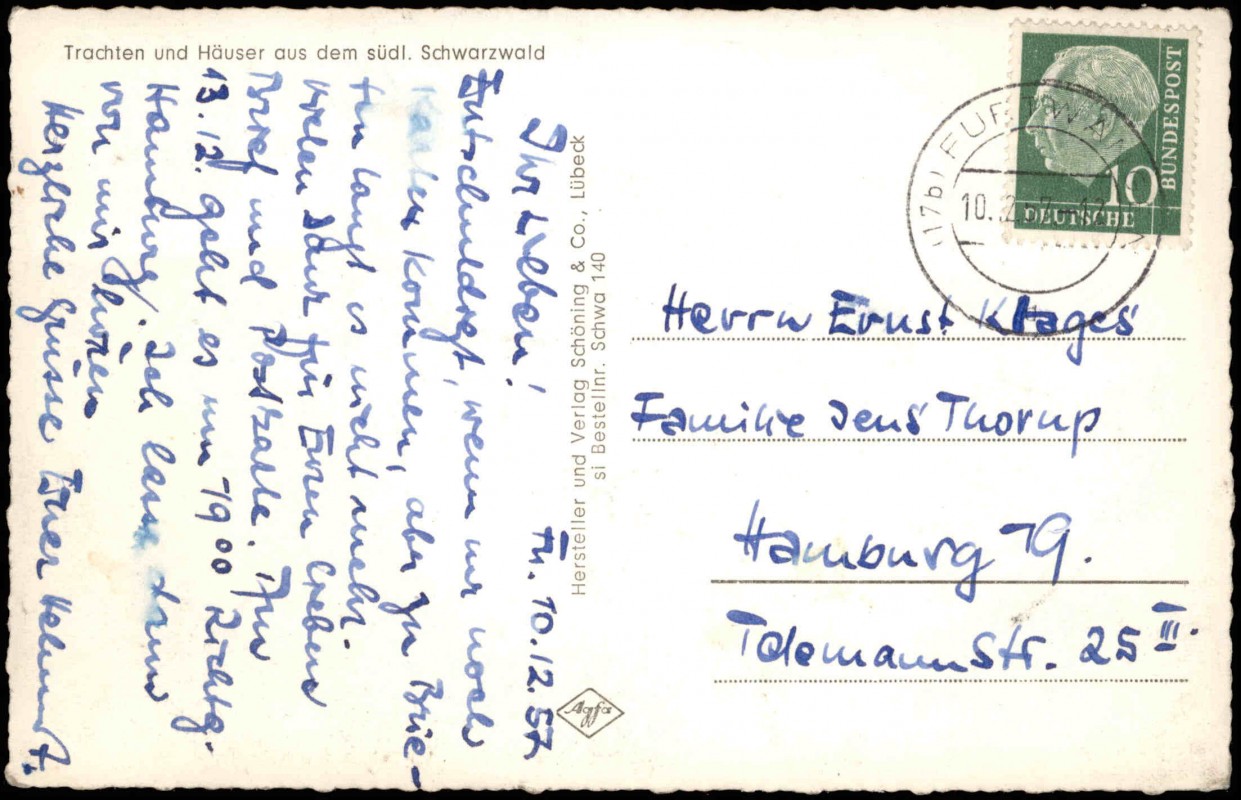 Trachten und Häuser aus dem südl. Schwarzwald
Ft. 10.12.57.
Ihr Lieben!
Entschuldigt, wenn nur noch
Karten kommen, aber zu Brie-
fen langt es nicht mehr.
Vielen Dank für Euren lieben
Brief und Postkarte. Am
13.12. geht es um 19 00 Richtg.
Hamburg. Ich lasse dann
von mir hören
Herzliche Grüsse Euer Helmut.
Hersteller und Verlag Schöning & Co., Lübeck
si Bestellnr. Schwa 140
Agfa
10
DEUTSCHE
BUNDESPOST
(17b) FURTWA
10.12.57
Herrn Ernst Klages
Familie Jens Thorup
Hamburg 19.
Telemannstr. 25 III.